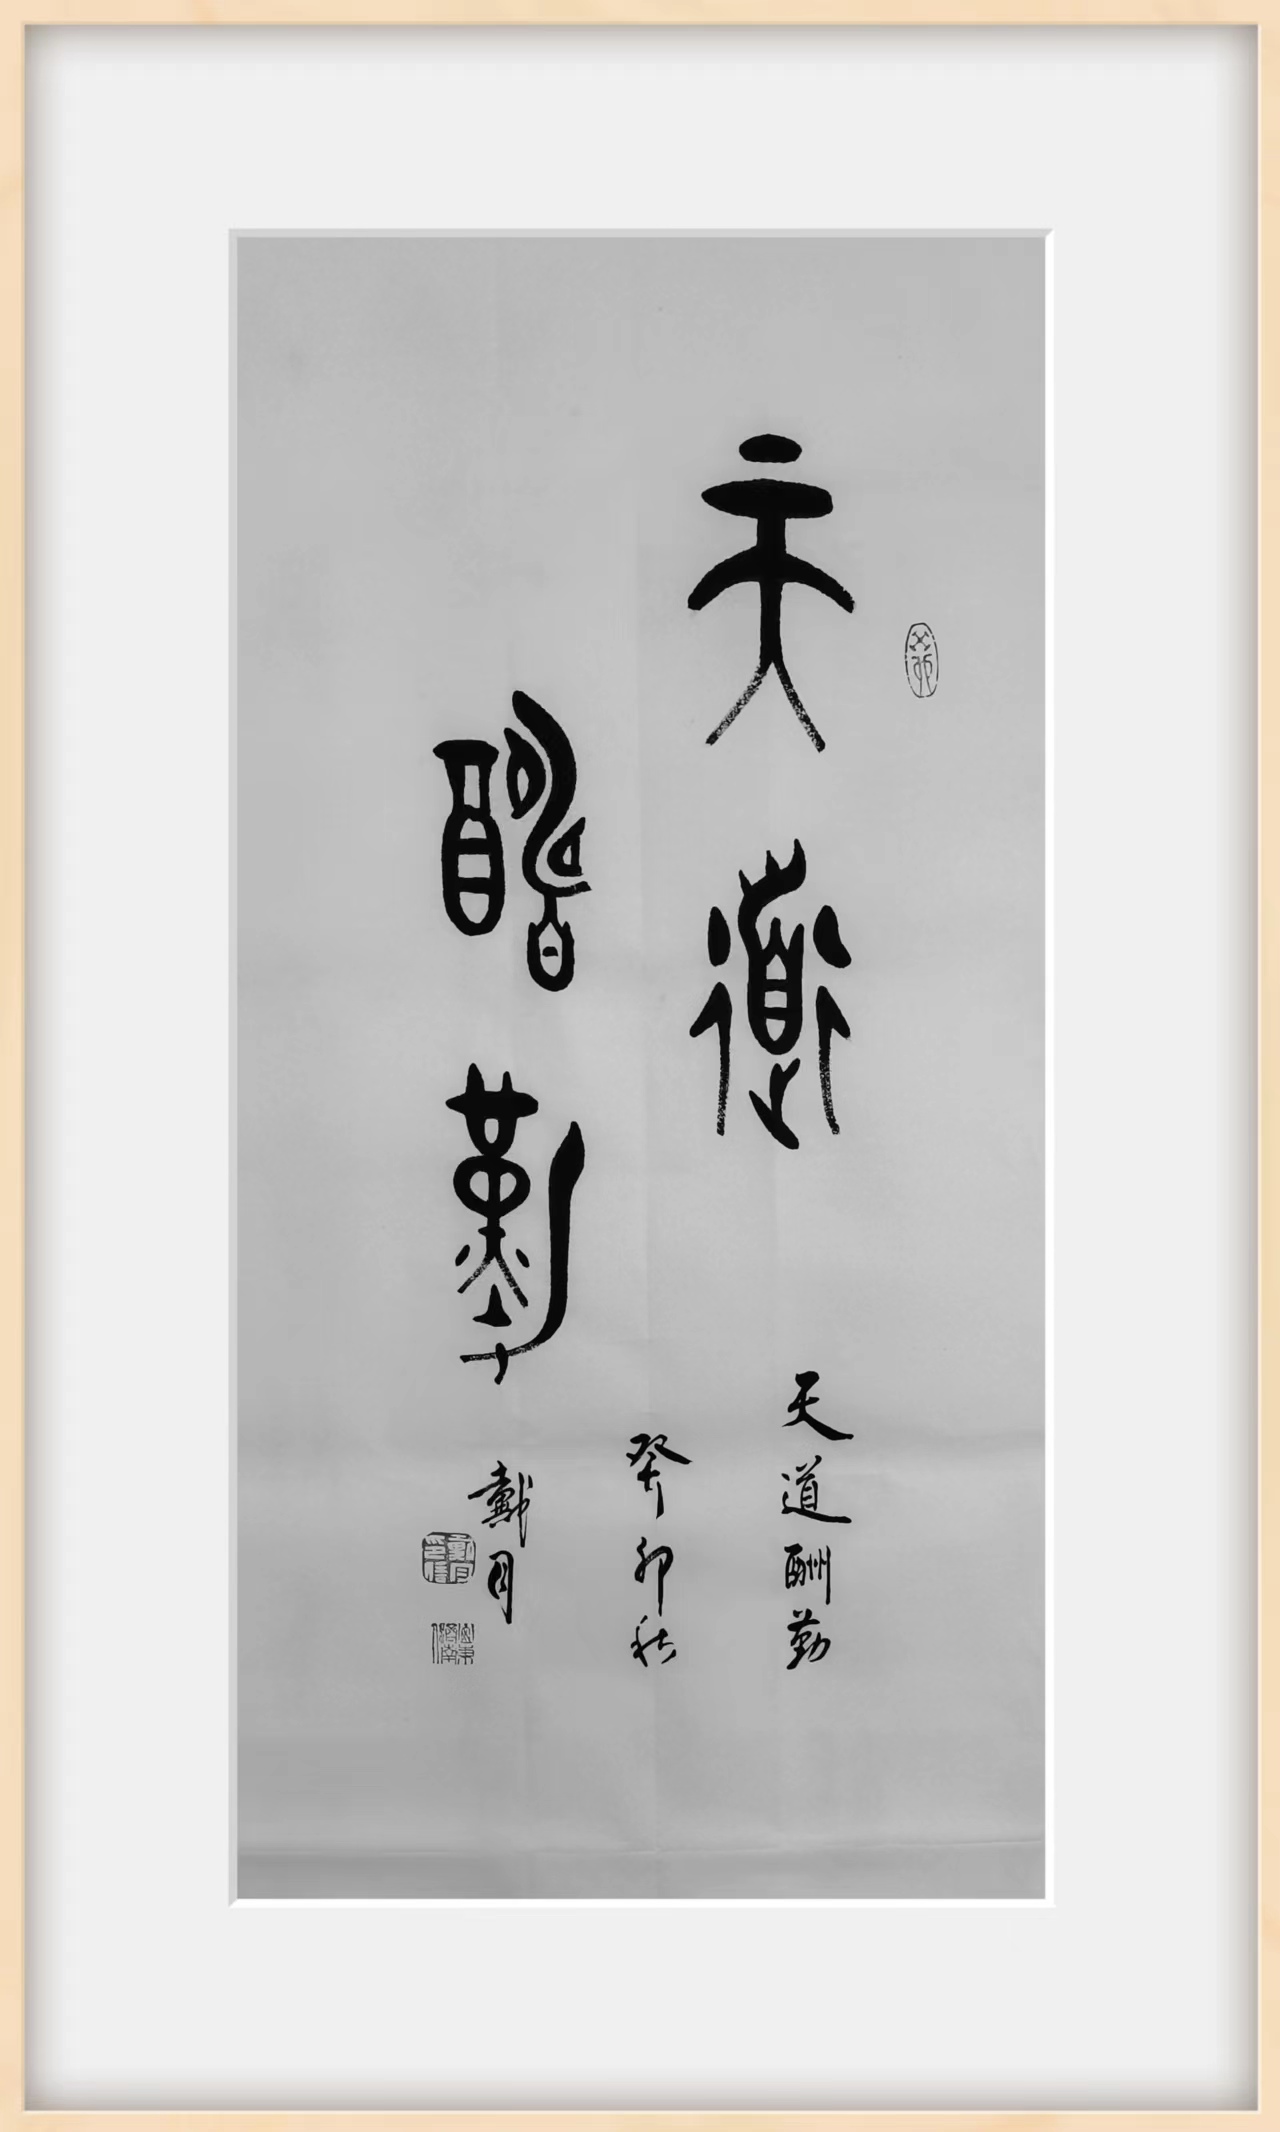 天道
酬勤
天道酬勤
癸卯秋
戴月